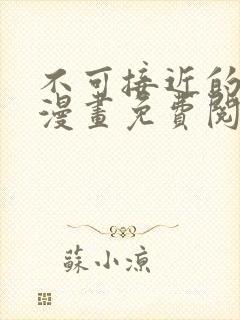 不可接近的
漫畫免費閱
蘇小涼